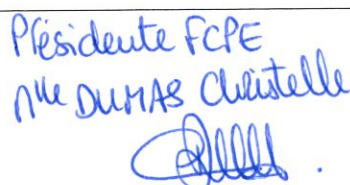 Présidente FCPE
Mlle DUMAS Christelle